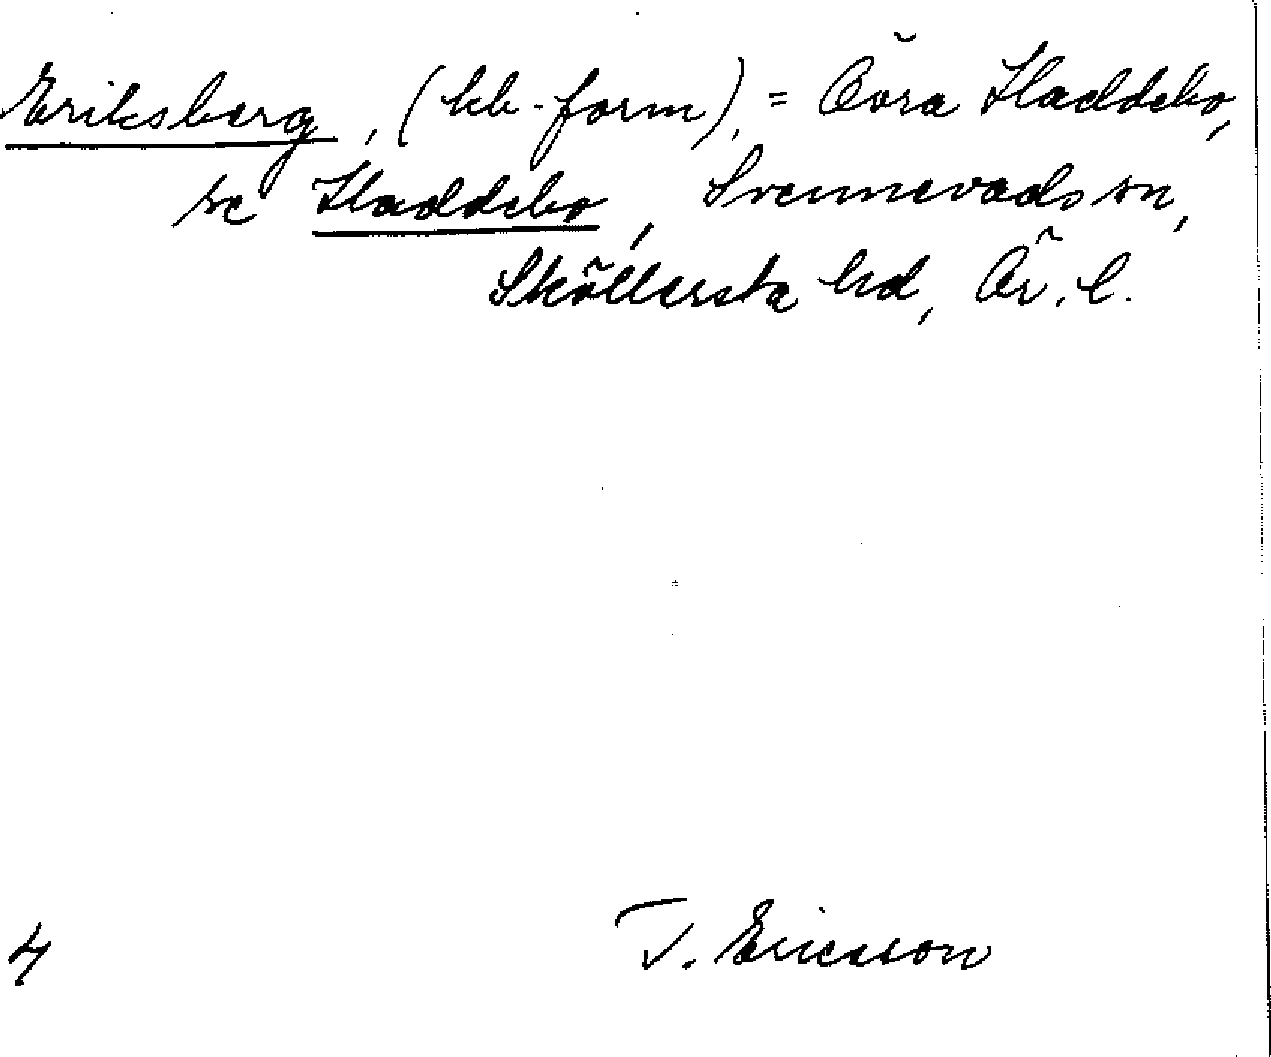 Eriksberg, (kb-form), = Övra Haddebo,
se Haddebo, Svennevads sn,
Sköllersta hd, Ör. l.
T. Ericsson
4